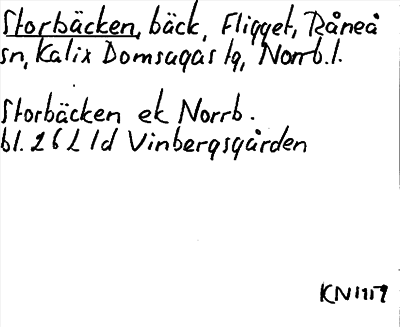 Storbäcken, bäck, Fligget, Råneå
sn, Kalix Domsagas tg, Norrb.l.
Storbäcken ek Norrb.
bl. 26 L 1d Vinbergsgården